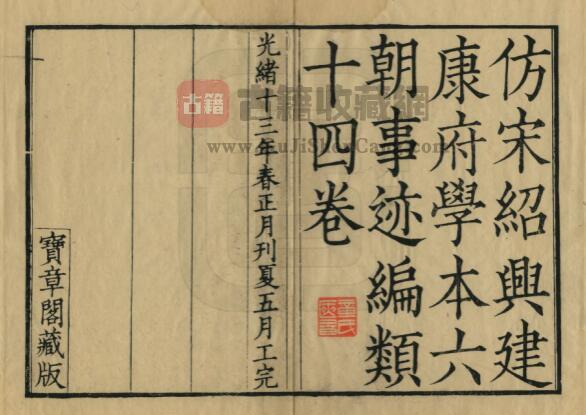 仿宋紹興建
康府學本六
朝事迹編類
十四卷
光緒十三年春正月刊夏五月工完
寶章閣藏版
古籍
古籍收藏網
www.GuJiShouCang.com